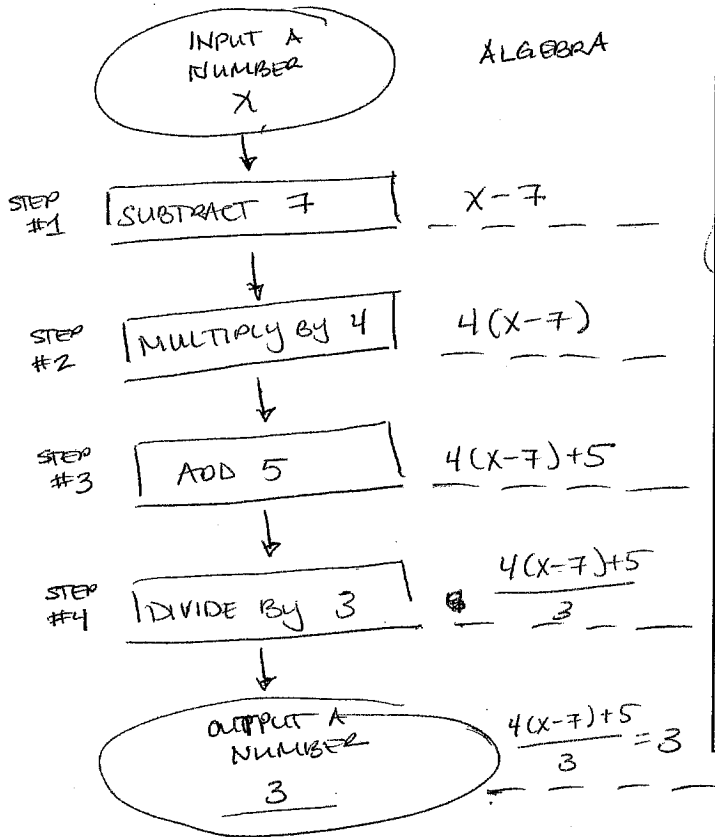 INPUT A
NUMBER
X
ALGEBRA
STEP
#1
SUBTRACT 7
x-7
STEP
#2
MULTIPLY BY 4
4(x-7)
STEP
#3
ADD 5
4(x-7)+5
STEP
#4
DIVIDE By 3
4(x-7)+5
3
OUTPUT A
NUMBER
3
4(x-7)+5
3
= 3